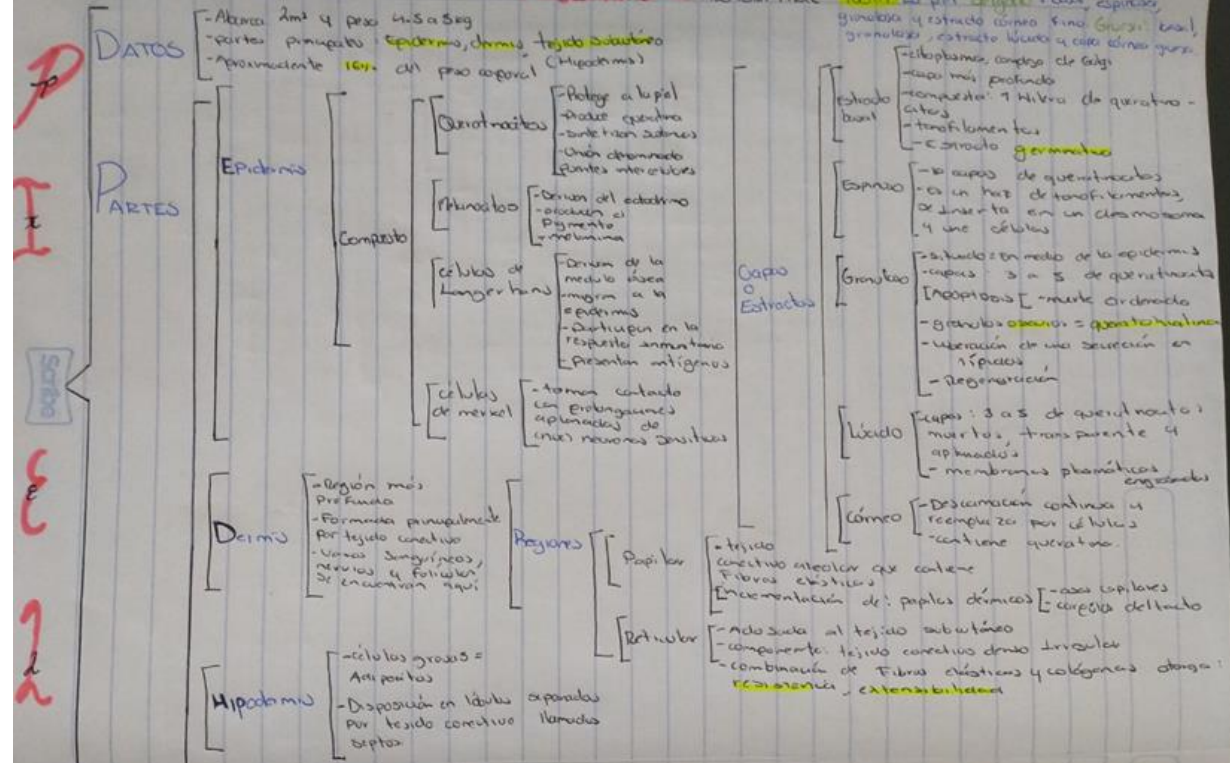 PIEL
Scribe
DATOS
-Abarca 2m² y pesa 4.5 a 5kg
-partes principales: Epidermis, dermis, tejido subcutáneo
(Hipodermis)
-Aproximadamente 16% del peso corporal
PARTES
Epidermis
Compuesto
Queratinocitos
-Protege a la piel
-Produce queratina
-Unión denominada
puentes intercelulares
Melanocitos
-Derivan del ectodermo
-producen el
Pigmento
-melanina
células de
Langerhans
-Derivan de la
medula ósea
-migran a la
epidermis
-Participan en la
respuesta inmunitaria
-presentan antígenos
células
de merkel
-toman contacto
con prolongaciones
aplanadas de
neuronas sensitivas
Capas
o
Estractos
granulosa y estracto córneo fino Gruesa: basal,
granulosa, estracto lúcido y capa córnea gruesa
Estracto
basal
-citoplasma, complejo de Golgi
-capa más profunda
-compuesta: 1 hilera de queratino-
citos
-tonofilamentos
-Estracto germinativo
Espinoso
capas de queratinocitos
-es un haz de tonofilamentos,
se inserta en un desmosoma
y une células
Granuloso
-situado: en medio de la epidermis
-capas: 3 a 5 de queratinocitos
[Apoptosis [-muerte ordenada
-granulos oscuros = queratohialina
-liberación de una secreción en
lípidos
-Degeneración
Lúcido
-capas: 3 a 5 de queratinocitos
muertos, transparente y
aplanados
-membranas plasmáticas
engrosadas
Córneo
-Descamación continua y
reemplaza por células
-contiene queratina.
Dermis
-Región más
Profunda
-Formada principalmente
por tejido conectivo
-Vasos Sanguíneos,
nervios y folículos
se encuentran aquí
Regiones
Papilar
-tejido
conectivo areolar que contiene
Fibras elásticas
Incrementación de: papilas dérmicas [-asas capilares
-corpúsculos del tacto
Reticular
-Adosada al tejido subcutáneo
-componente: tejido conectivo denso irregular
-combinación de Fibras elásticas y colágenas otorga:
resistencia, extensibilidad
Hipodermis
-células grasas =
Adipocitos
-Disposición en lóbulos separados
por tejido conectivo llamados
septos